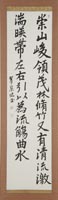 崇山峻領茂林脩竹又有清流激
湍暎帶左右引以為流觴曲水